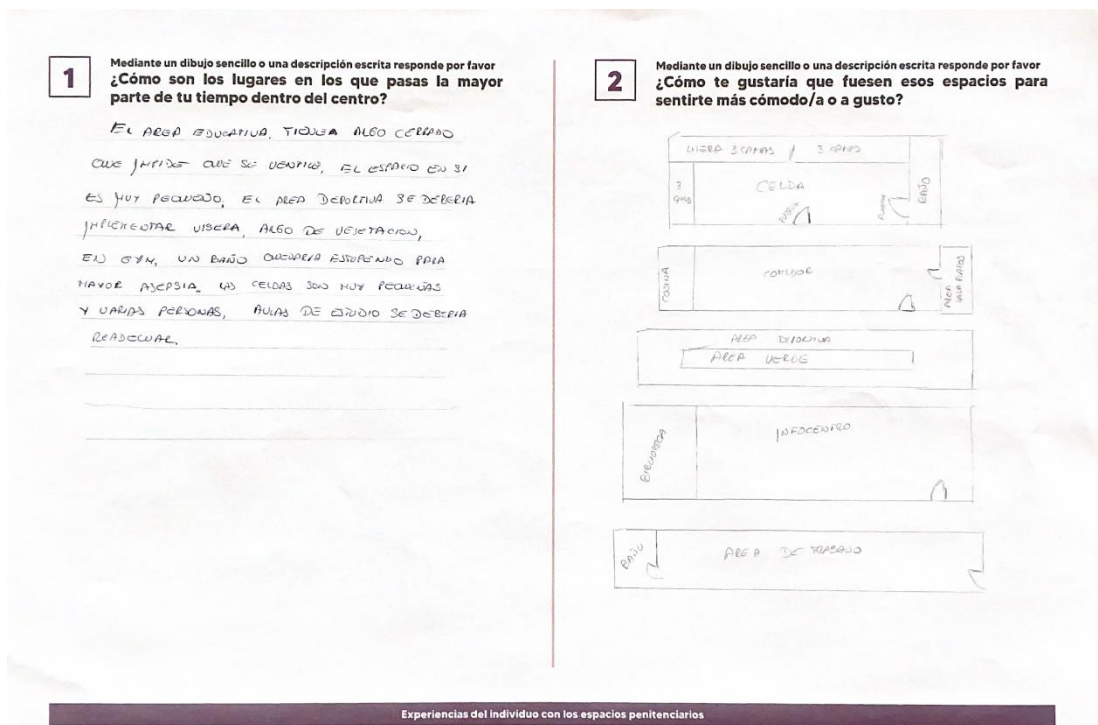 1
Mediante un dibujo sencillo o una descripción escrita responde por favor
¿Cómo son los lugares en los que pasas la mayor
parte de tu tiempo dentro del centro?
EL AREA EDUCATIVA, ALGO CERRADO
QUE IMPIDE QUE SE VENTILE, EL ESPACIO EN SI
ES MUY PEQUEÑO, EL AREA DEPORTIVA SE DEBERIA
IMPLEMENTAR VISERA, ALGO DE VEJETACION,
EN GYM, UN BAÑO QUEDARIA ESTUPENDO PARA
MAYOR ASEPSIA, LAS CELDAS SON MUY PEQUEÑAS
Y VARIAS PERSONAS, AULAS DE ESTUDIO SE DEBERIA
READECUAR.
2
Mediante un dibujo sencillo o una descripción escrita responde por favor
¿Cómo te gustaría que fuesen esos espacios para
sentirte más cómodo/a o a gusto?
LITERA 3 CAMAS / 3 CAMAS
3
CELDA
PUERTA
PUERTA
BAÑO
COCINA
COMEDOR
AREA LAVA PLATOS
AREA DEPORTIVA
AREA VERDE
BIBLIOTECA
INFOCENTRO
BAÑO
AREA DE TRABAJO
Experiencias del individuo con los espacios penitenciarios